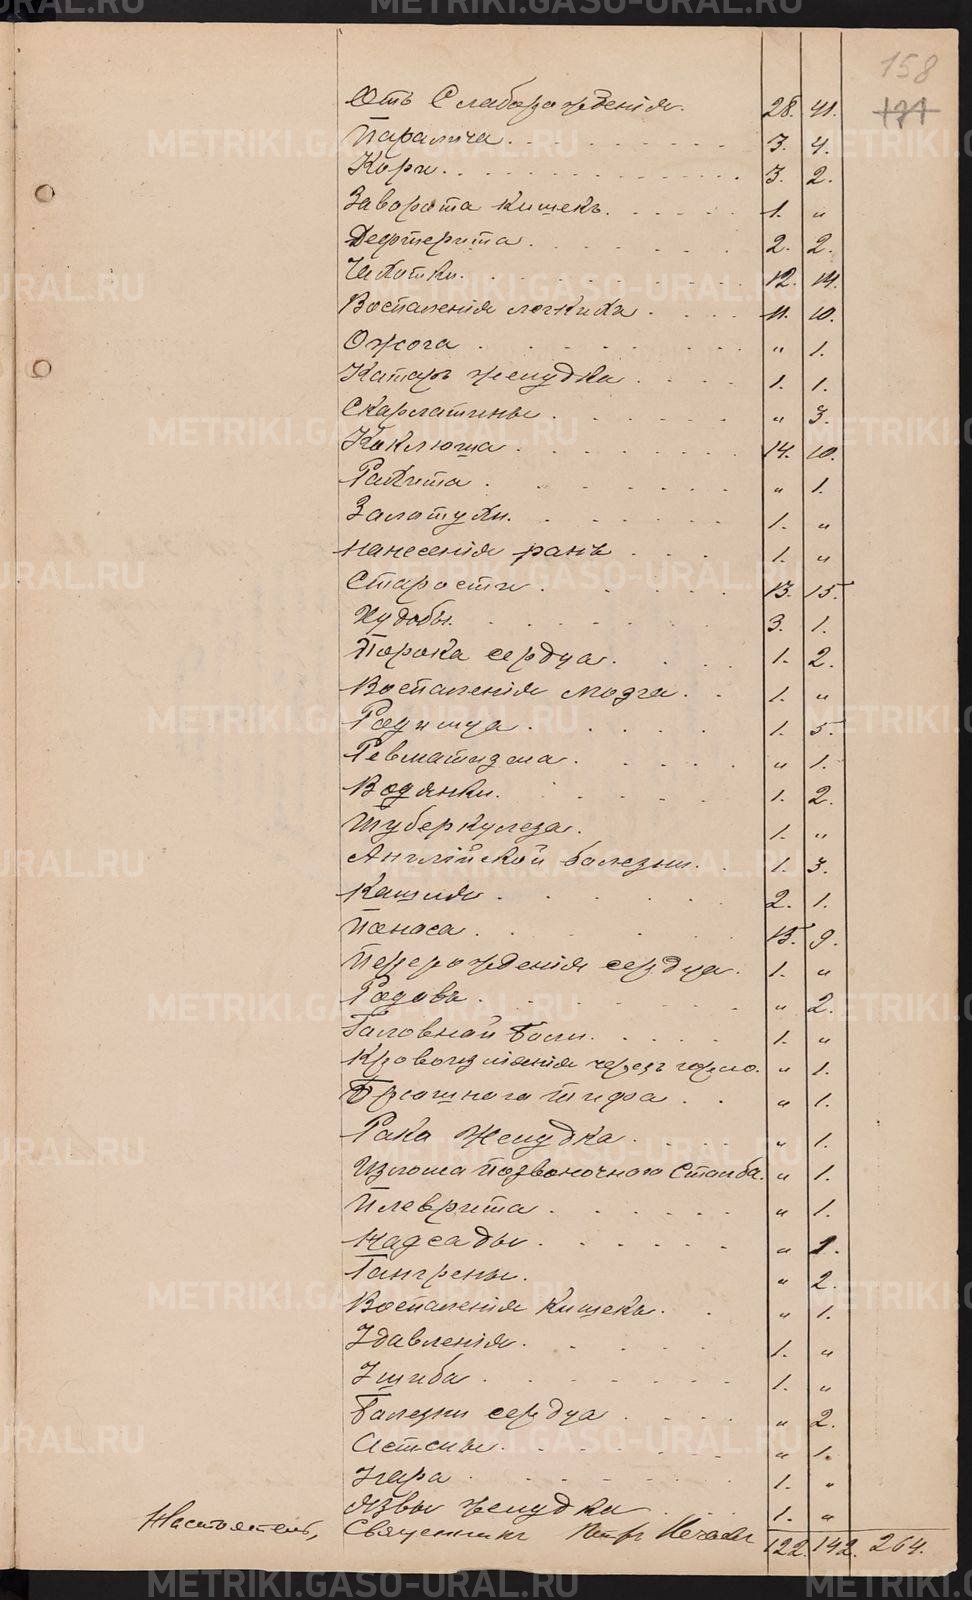 158
171
Отъ Слаборожденія. 28. 41.
Паралича. 3. 4.
Кори. 3. 2.
Заворота кишекъ. 1. "
Дефтерита. 2. 2.
Чахотки. 12. 14.
Воспаленія легкихъ. 11. 10.
Ожога " 1.
Катаръ желудка 1. 1.
Скарлатины. " 3.
Коклюша 14. 10.
Рахита. " 1.
Золотухи. 1. "
Нанесенія ранъ 1. "
Старости 13. 15.
Худобы. 3. 1.
Порока сердца. 1. 2.
Воспаленія мозга. 1. "
Родимца. 1. 5.
Ревматизма. " 1.
Водянки. 1. 2.
Туберкулеза. 1. "
Англійской болезни. 1. 3.
Кашля 2. 1.
Поноса. 15. 9.
Перерожденія сердца. 1. "
Родовъ " 2.
Головной боли. 1. "
черезъ горло. " 1.
Брюшного тифа " 1.
Рака Желудка. " 1.
Излома позвоночнаго столба. " 1.
Плеврита. " 1.
Надсады. " 1.
Гангрены. " 2.
Воспаленія Кишекъ. " 1.
Удавленія. 1. "
Ушиба 1. "
Болезни сердца " 2.
Астмы. " 1.
Угара 1. "
Язвы желудка 1. "
Настоятель, Священникъ Петръ
122. 142. 264.
METRIKI.GASO-URAL.RU